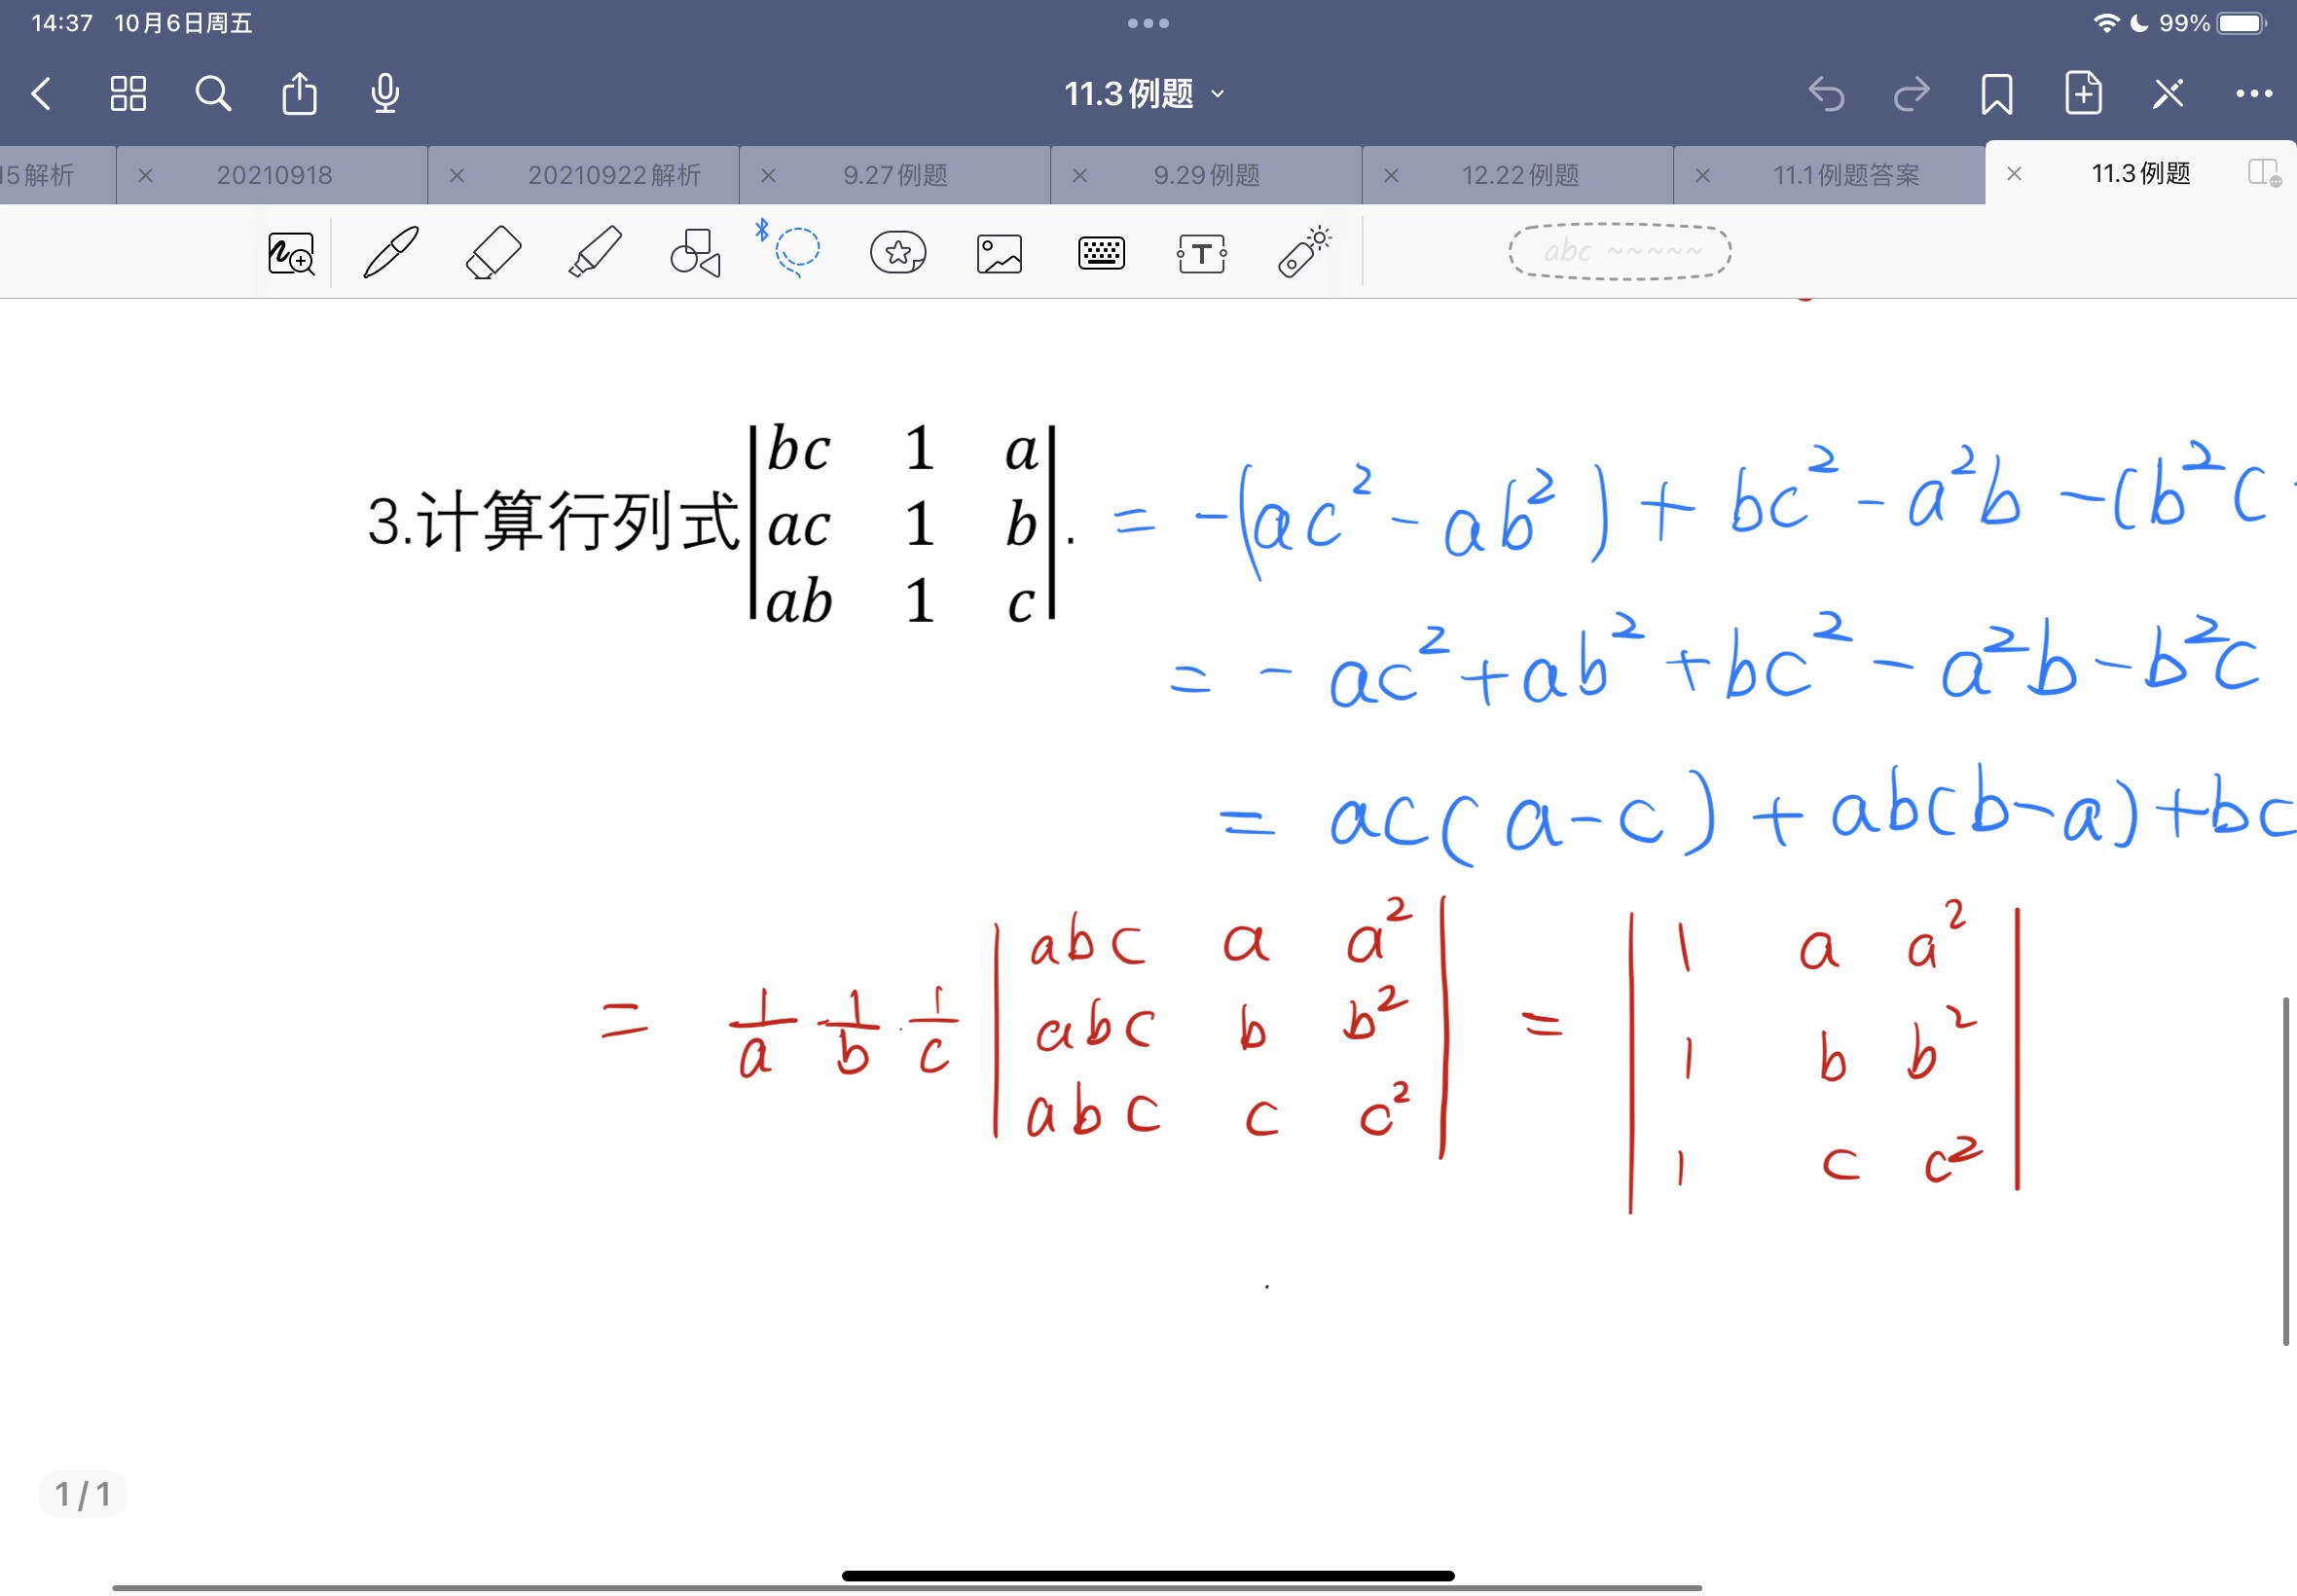 14:37 10月6日周五
99%
11.3例题
15解析 20210918 20210922解析 9.27例题 9.29例题 12.22例题 11.1例题答案 11.3例题
T abc ~~~~~
3.计算行列式|bc 1 a|
|ac 1 b|.
|ab 1 c|
= -(ac² - ab²) + bc² - a²b -(b²c
= - ac² + ab² + bc² - a²b - b²c
= ac(a-c) + ab(b-a) + bc
= 1/a 1/b · 1/c |abc a a²| = |1 a a²|
|abc b b²| |1 b b²|
|abc c c²| |1 c c²|
1/1